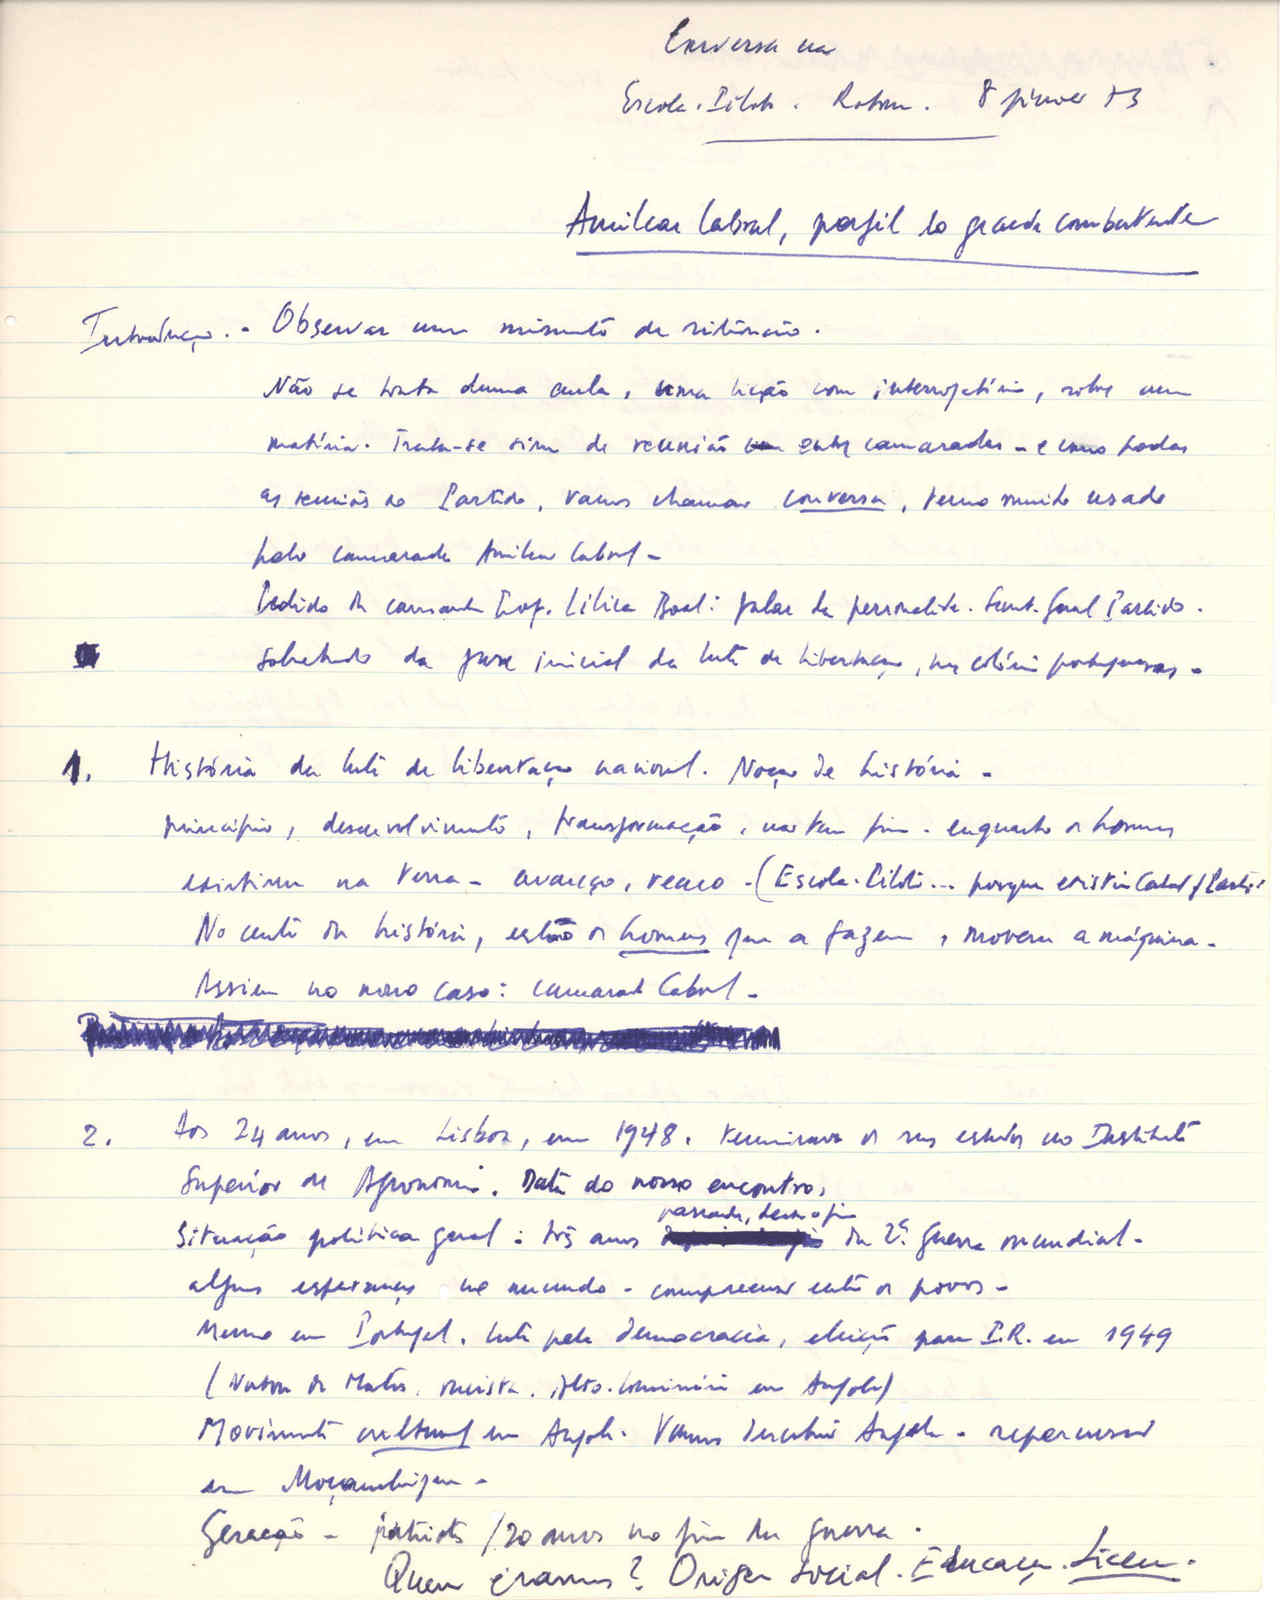 Conversa na
Escola-Piloto. Ratoma. 8 janeiro 73
Amilcar Cabral, perfil do grande combatente
Introdução. - Observar um minuto de silêncio.
Não se trata duma aula, uma lição com interrogatório, sobre uma
matéria. Trata-se sim de reunião entre camaradas - e como todas
as reuniões do Partido, vamos chamar conversa, termo muito usado
pelo camarada Amilcar Cabral -
Pedido da camarada Lilica Boal: falar da personalida. Secret. Geral Partido.
Sobretudo da fase inicial da luta de libertação, nas colónias portuguesas -
1. História da luta de libertação nacional. Noção de história -
princípio, desenvolvimento, transformação, não tem fim - enquanto os homens
existirem na terra - avanço, recuo - (Escola-Piloto... porque existiu Cabral / Partido
No centro da história, estão os homens que a fazem, movem a máquina -
Assim no nosso caso: camarada Cabral -
2. Aos 24 anos, em Lisboa, em 1948. Terminava os seus estudos no Instituto
Superior de Agronomia. Data do nosso encontro.
passados, desde o fim
Situação política geral: três anos da 2ª guerra mundial -
algumas esperanças no mundo - compreensão entre os povos -
Mesmo em Portugal. Luta pela democracia, eleição para P.R. em 1949
(Norton de Matos, Alto-Comissário em Angola)
Movimento cultural em Angola. Vamos descobrir Angola - repercussão
em Moçambique -
Geração - patriotas / 20 anos no fim da guerra.
Quem éramos? Origem social. Educação. Liceu.